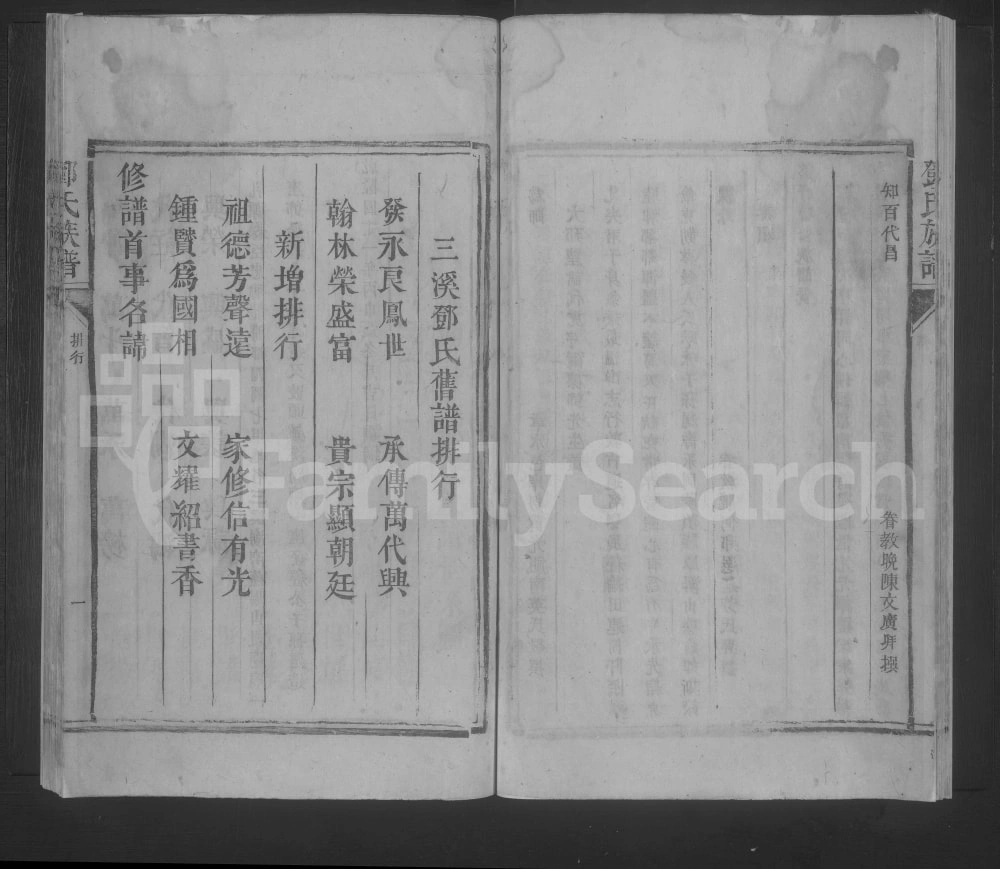 鄧氏族譜
知百代昌
眷教晚陳文廣拜撰
三溪鄧氏舊譜排行
發永良鳳世 承傳萬代興
翰林榮盛富 貴宗顯朝廷
新增排行
祖德芳聲遠 家修信有光
鍾賢為國相 文耀紹書香
修譜首事名諦
鄧氏族譜
排行
一
FamilySearch